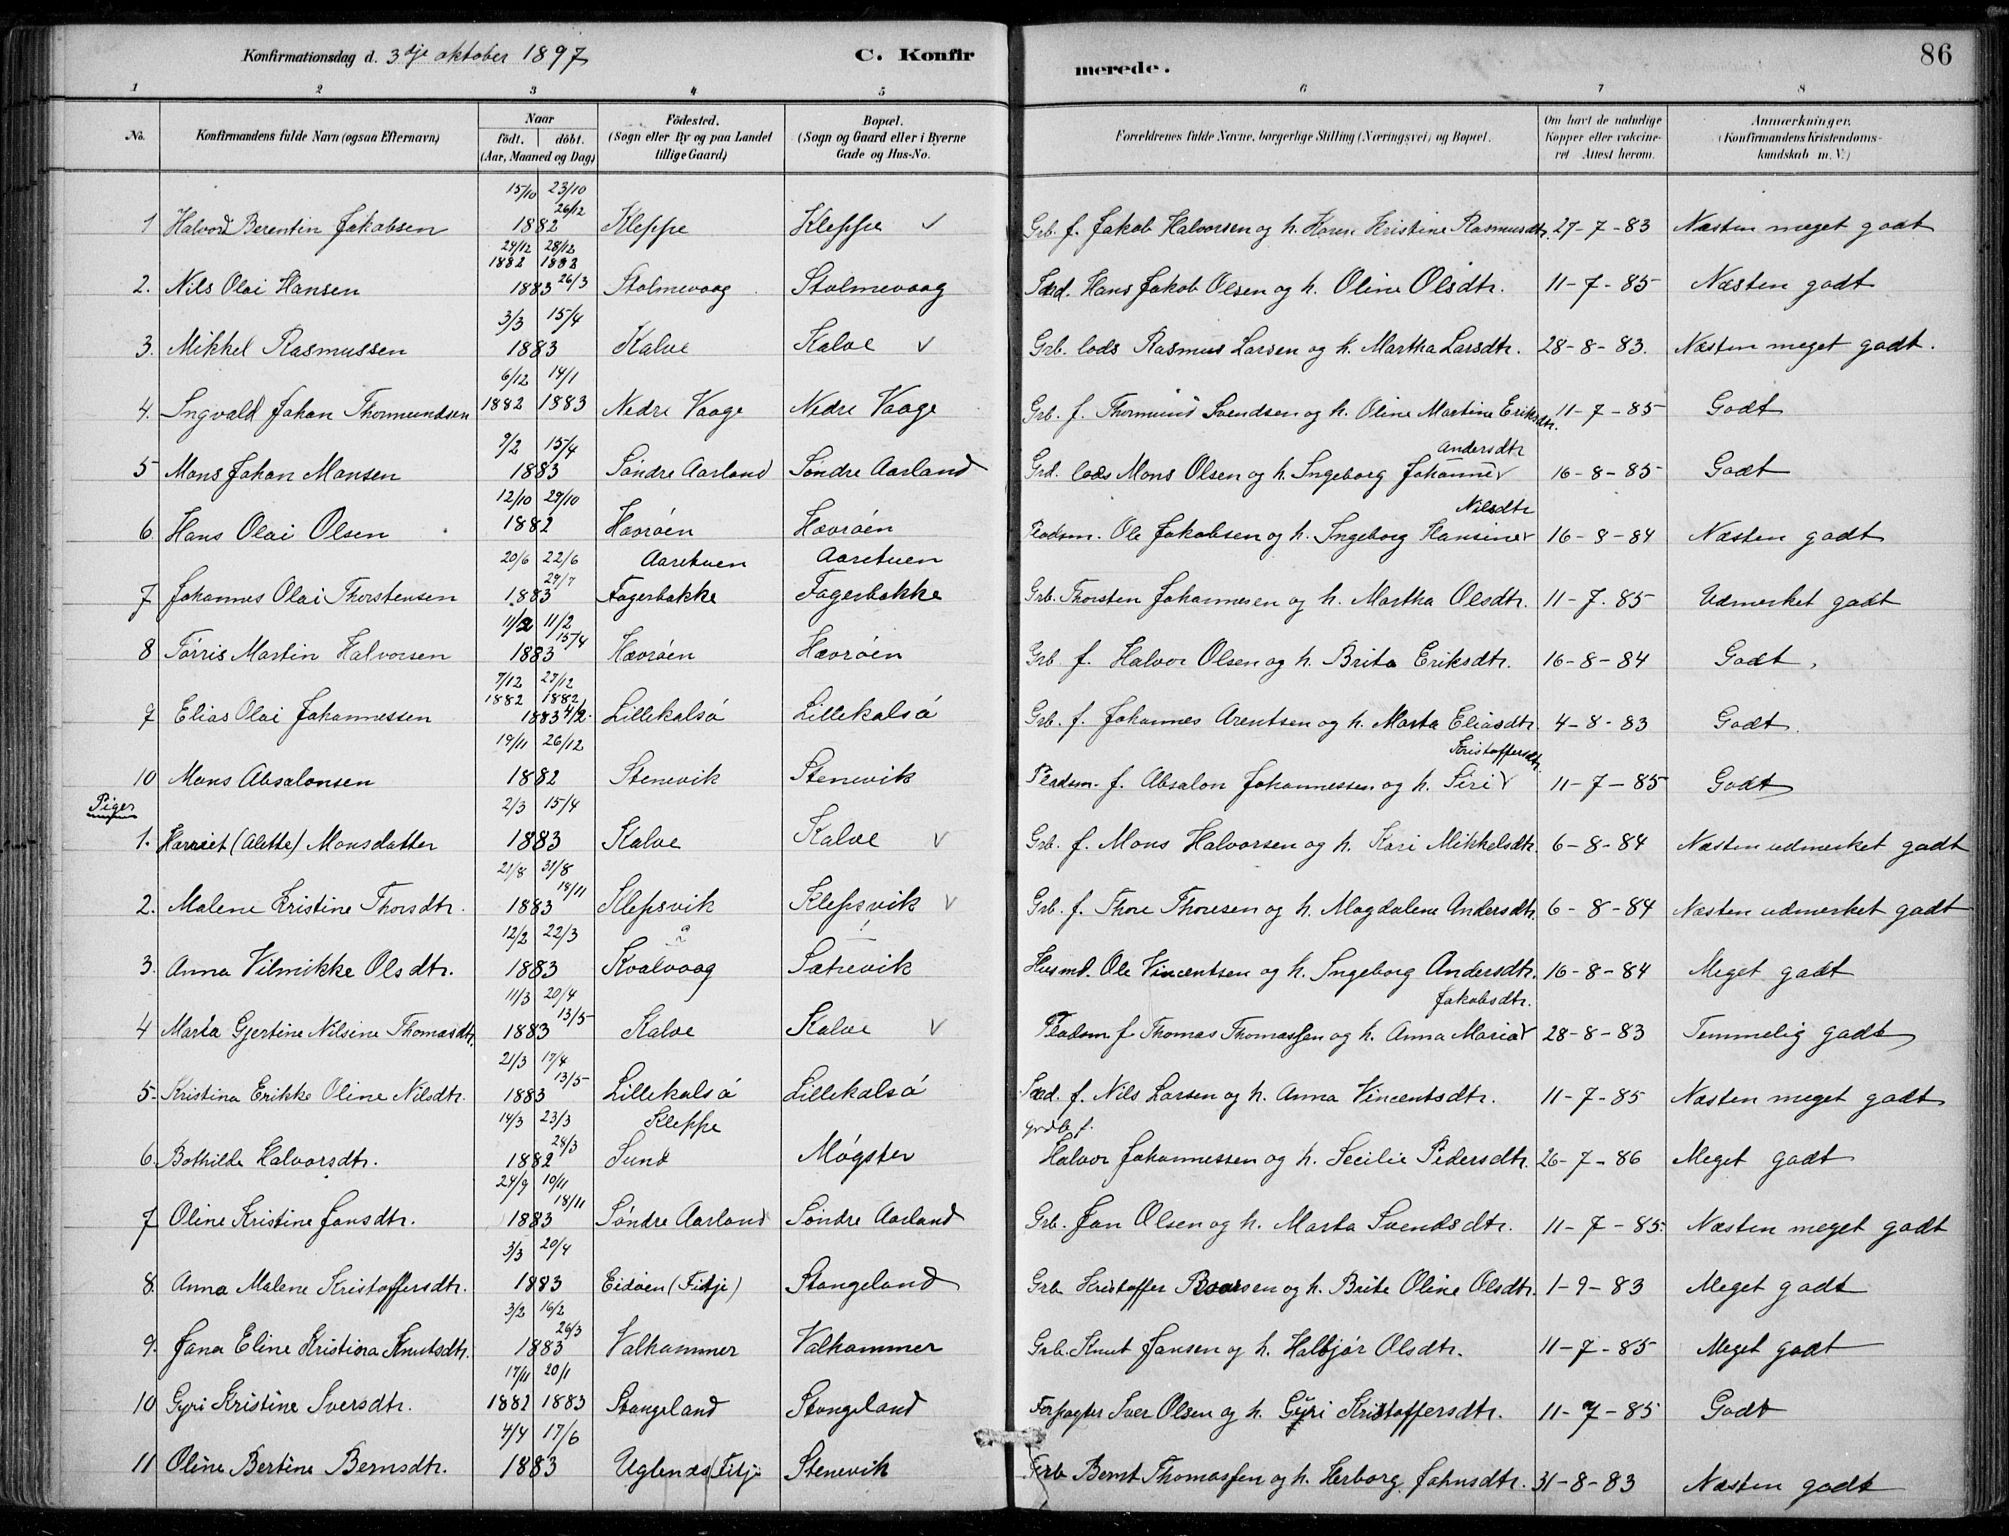 Konfirmationsdag d. 3dje oktober 1897
C. Konfirmerede.
86
1 2 3 4 5 6 7 8
No.
Konfirmandens fulde Navn (ogsaa Efternavn)
Naar født. døbt. (Aar, Maaned og Dag)
Födested. (Sogn eller By og paa Landet tillige Gaard)
Bopæl. (Sogn og Gaard eller i Byerne Gade og Hus-No.
Forældrenes fulde Navne, borgerlige Stilling (Næringsvei) og Bopæl.
Om havt de naturlige Kopper eller vakcineret Attest herom.
Anmærkninger. (Konfirmandens Kristendomskundskab m. V.)
1 Halvord Berentin Jakobsen 15/10 23/10 26/12 1882 Kleppe Kleppe Grb. f. Jakob Halvorsen og h. Karen Kristine Rasmusdtr. 27-7-83 Næsten meget godt
2. Nils Olai Hansen 24/12 28/12 1882 1882 1883 26/3 Stolmevaag Stolmevaag Hans Jakob Olsen og h. Oline Olsdtr. 11-7-85 Næsten godt
3. Mikkel Rasmussen 3/3 15/4 1883 Kalve Kalve Grb. lods Rasmus Larsen og h. Martha Larsdtr. 28-8-83. Næsten meget godt.
4. Ingvald Johan Thormundsen 6/12 14/1 1882 1883 Nedre Vaage Nedre Vaage Grb. f. Thormund Svendsen og h. Oline Martine Eriksdtr. 11-7-85 Godt
5 Mons Johan Monsen 9/2 15/4 1883 Söndre Aarland Söndre Aarland Grd. lods Mons Olsen og h. Ingeborg Johanne Andersdtr 16-8-85 Godt
6. Hans Olai Olsen 12/10 29/10 1882 Hævröen Hævröen Pladsm. Ole Jakobsen og h. Ingeborg Hansine Nilsdtr 16-8-84 Næsten godt
7 Johannes Olai Thorstensen 20/6 22/6 29/7 1883 Aaretuen Fagerbakke Aaretuen Fagerbakke Grb. Thorsten Johannesen og h. Martha Olsdtr. 11-7-85 Udmerket godt
8 Tørris Martin Halvorsen 11/2 11/2 15/4 1883 Hævröen Hævröen Grb f. Halvor Olsen og h. Brita Eriksdtr. 16-8-84 Godt.
9 Elias Olai Johannessen 7/12 27/12 1882 1882 1883 4/2. Lillekalsö Lillekalsö Grb. f. Johannes Arentsen og h. Marta Eliasdtr. 4-8-83 Godt.
10 Mons Absalonsen 19/11 26/12 1882 Stenevik Stenevik Pladsm. f. Absalon Johannessen og h. Siri Kristoffersdtr. 11-7-85 Godt
Piger
1. Harriet (Alette) Monsdatter 2/3 15/4 1883 Kalve Kalve Grb. f. Mons Halvorsen og h. Kari Mikkelsdtr. 6-8-84 Næsten udmerket godt
2. Malene Kristine Thorsdtr. 21/8 31/8 18/11 1883 Klepsvik Klepsvik Grb. f. Thore Thoresen og h. Magdalene Andersdtr. 6-8-84 Næsten udmerket godt
3. Anna Vilmikke Olsdtr. 12/2 22/3 1883 Kvalvaag Sætrevik Husmd. Ole Vincentsen og h. Ingeborg Andersdtr. 16-8-84 Meget godt
4 Marta Gjertine Nilsine Thomasdtr. 11/3 20/4 13/5 1883 Kalve Kalve Pladsm f. Thomas Thomassen og h. Anna Maria Jakobsdtr. 28-8-83 Temmelig godt
5. Kristina Erikke Oline Nilsdtr. 21/3 17/4 13/5 1883 Lillekalsö Lillekalsö f. Nils Larsen og h. Anna Vincentsdtr. 11-7-85 Næsten meget godt
6. Bothilde Halvorsdtr. 14/3 23/3 28/3 1882 Kleppe Sund Mögster grdb f. Halvor Johannessen og h. Secilie Pedersdtr. 26-7-86 Meget godt
7 Oline Kristine Jansdtr. 24/9 10/11 18/11 1883 Söndre Aarland Söndre Aarland Grb. Jan Olsen og h. Marta Svendsdtr. 11-7-85. Næsten meget godt
8. Anna Malene Kristoffersdtr. 3/3 20/4 1883 Eidöen (Fitje) Stangeland Grb Kristoffer og h. Brite Oline Olsdtr. 1-9-83 Meget godt
9. Jana Eline Kristina Knutsdtr. 3/2 16/2 26/3 1883 Valhammer Valhammer Grb. Knut Jansen og h. Halbjör Olsdtr. 11-7-85 Meget godt
10 Gyri Kristine Iversdtr. 17/11 20/1 1882 1883 Stangeland Stangeland Forpagter Iver Olsen og h. Gyri Kristoffersdtr. 11-7-85 Godt
11 Oline Bertine Bernsdtr. 4/4 17/6 1883 Uglenæs (Fitje Stenevik Bernt Thomassen og h. Herborg Johnsdtr. 31-8-83 Næsten godt